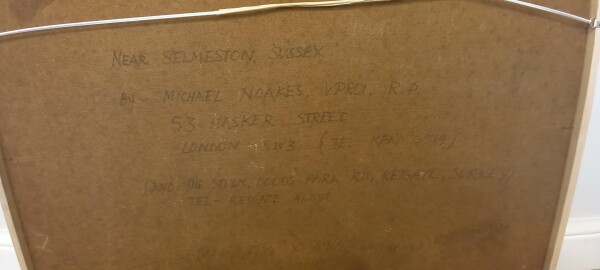 NEAR SELMESTON, SUSSEX
BY - MICHAEL NOAKES, VPROI, R.P.
53 HASKER STREET
LONDON SW3 (TEL
(AND THE STUDIO, DOODS PARK RD, REIGATE, SURREY)
TEL - REIGATE